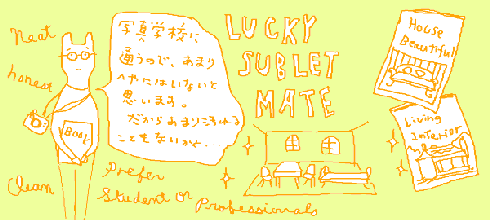 Neat
honest
Clean
写真学校に
通うので、あまり
へやにはいないと
思います。
だからあまり
こともないかな。
BOOK
LUCKY
SUBLET
MATE
House
Beautiful
Living
Interior
Prefer
Student or Professionals